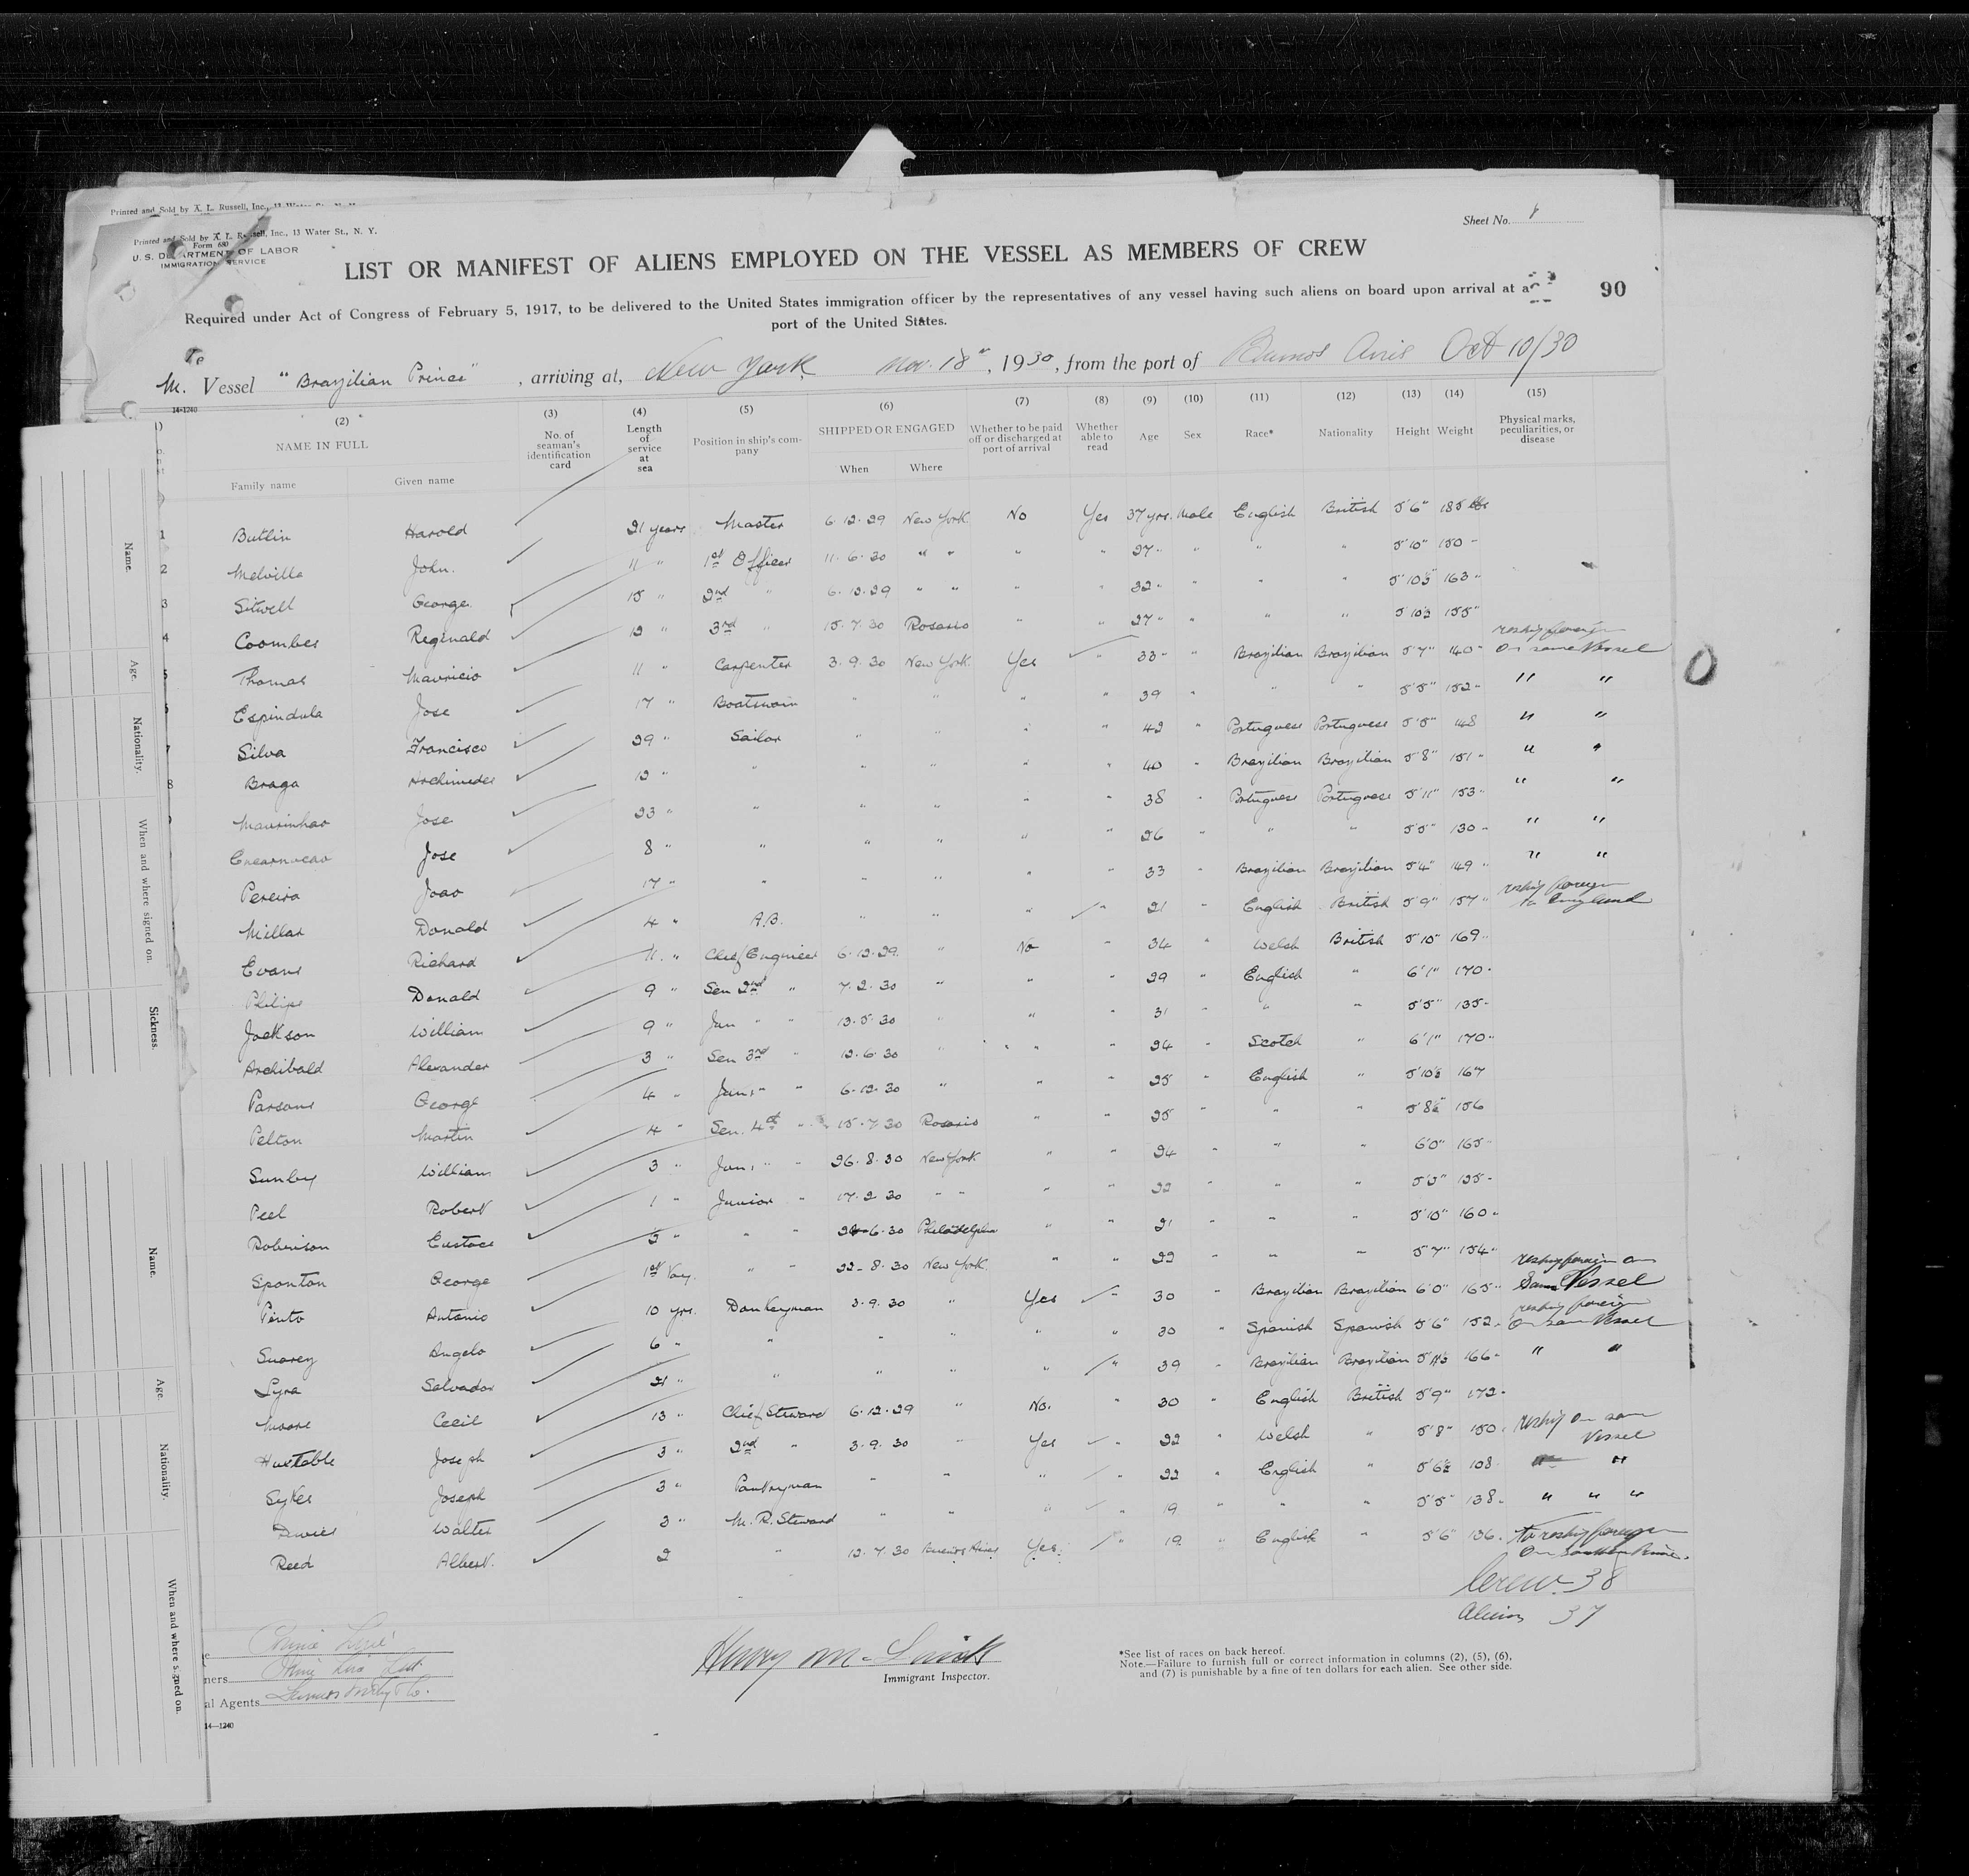 Printed and Sold by A. L. Russell, Inc., 13 Water St., N. Y.
Printed and Sold by A. L. Russell, Inc., 13 Water St., N. Y.
Form 680
U. S. DEPARTMENT OF LABOR
IMMIGRATION SERVICE
Sheet No. 1
LIST OR MANIFEST OF ALIENS EMPLOYED ON THE VESSEL AS MEMBERS OF CREW
90
Required under Act of Congress of February 5, 1917, to be delivered to the United States immigration officer by the representatives of any vessel having such aliens on board upon arrival at a
port of the United States.
M. Vessel "Brazilian Prince", arriving at, New York Nov. 18", 1930, from the port of Buenos Aires Oct 10/30
14-1240
(2) (3) (4) (5) (6) (7) (8) (9) (10) (11) (12) (13) (14) (15)
NAME IN FULL No. of seaman's identification card Length of service at sea Position in ship's company SHIPPED OR ENGAGED Whether to be paid off or discharged at port of arrival Whether able to read Age Sex Race* Nationality Height Weight Physical marks, peculiarities, or disease
Family name Given name When Where
1 Butlin Harold 21 years Master 6.12.29 New York No Yes 37 yrs. Male English British 5'6" 185 lbs
2 Melville John. 11 " 1st Officer 11.6.30 " " " " 27 " " " " 5'10" 150 "
3 Sitwell George 15 " 2nd " 6.12.29 " " " " 32 " " " " 5'10½ 163 "
4 Coombes Reginald 12 " 3rd " 15.7.30 Rosario " " 27 " " " " 5'10½ 155 "
5 Thomas Mauricio 11 " Carpenter 3.9.30 New York Yes " 33 " " Brazilian Brazilian 5'7" 140 " reship foreign on same Vessel
Espindula Jose 17 " Boatswain " " " " 39 " " " 5'5" 152 " " "
7 Silva Francisco 29 " Sailor " " " " 42 " Portuguese Portuguese 5'5" 148 " "
8 Braga Archimedes 12 " " " " " " 40 " Brazilian Brazilian 5'8" 151 " " "
Jose 23 " " " " " " 38 " Portuguese Portuguese 5'11" 153 " " "
Jose 8 " " " " " " 26 " " " 5'5" 130 " " "
Pereira Joao 17 " " " " " " 33 " Brazilian Brazilian 5'4" 149 " " "
Millar Donald 4 " A.B. " " " " 21 " English British 5'9" 157 " reship foreign to England
Evans Richard 11 " Chief Engineer 6.12.29 " No " 34 " Welsh British 5'10" 169 "
Philips Donald 9 " Sen 2nd " 7.2.30 " " " 29 " English " 6'1" 170 "
Jackson William 9 " Jun " " 13.5.30 " " " 31 " " " 5'5" 135 "
Archibald Alexander 3 " Sen 3rd " 12.6.30 " " " 24 " Scotch " 6'1" 170 "
Parsons George 4 " Jun " " 6.12.30 " " " 25 " English " 5'10½ 167
Pelton Martin 4 " Sen. 4th " 15.7.30 Rosario " " 25 " " " 5'8½" 156
Sunley William 3 " Jun. " " 26.8.30 New York " " 24 " " " 6'0" 165 "
Peel Robert 1 " Junior " 17.2.30 " " " " 22 " " "
Robinson Eustace 2 " " " 6.30 Philadelphia " " 21 " " " 5'10" 160 "
Sponton George 1st Voy. " " 22-8.30 New York " " 22 " " " 5'7" 154 "
Pinto Antonio 10 yrs. Donkeyman 3.9.30 " Yes " 30 " Brazilian Brazilian 6'0" 165 " reship foreign on Same Vessel
Suarez Angelo 6 " " " " " " 30 " Spanish Spanish 5'6" 152 " reship foreign on same Vessel
Lyra Salvador 21 " " " " " " 39 " Brazilian Brazilian 5'11½ 166 " " "
Moore Cecil 13 " Chief Steward 6.12.29 " No. " 30 " English British 5'9" 172 "
Huxtable Joseph 3 " 2nd " 3.9.30 " Yes " 22 " Welsh " 5'8" 150 " reship on same Vessel
Sykes Joseph 3 " Pantryman " " " " 22 " English " 5'6½ 108 " "
Walter 3 " M. R. Steward " " " " 19 " " " 5'5" 138 " " " "
Reed Albert. 2 " 12.7.30 Buenos Aires Yes. " 19 " English " 5'6" 136 " to reship foreign
Crew 38
Aliens 37
Prince Line
Owners Prince Line Ltd
al Agents
Immigrant Inspector.
*See list of races on back hereof.
Note.—Failure to furnish full or correct information in columns (2), (5), (6),
and (7) is punishable by a fine of ten dollars for each alien. See other side.
14—1240
Name.
Age.
Nationality.
When and where signed on.
Sickness.
Name.
Age.
Nationality.
When and where signed on.